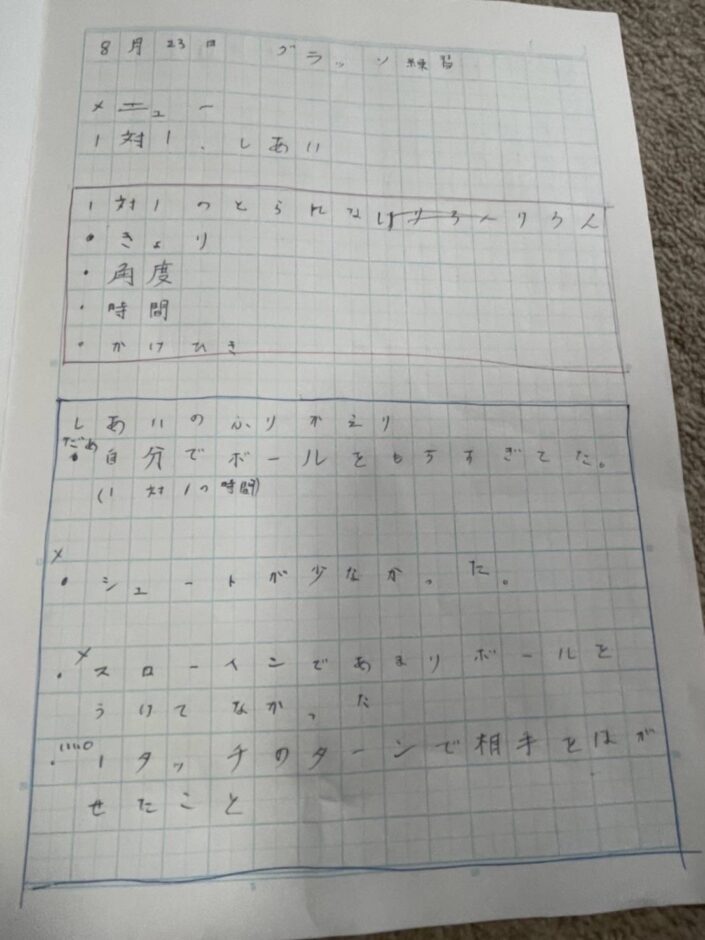 8月23日 グラッソ練習
メニュー
1対1、しあい
1対1のとられない
・きょり
・角度
・時間
・かけひき
しあいのふりかえり
だめ
・自分でボールをもちすぎてた。
(1対1の時間)
×
・シュートが少なかった。
×
・スローインであまりボールを
うけてなかった
・いい。1タッチのターンで相手をはが
せたこと